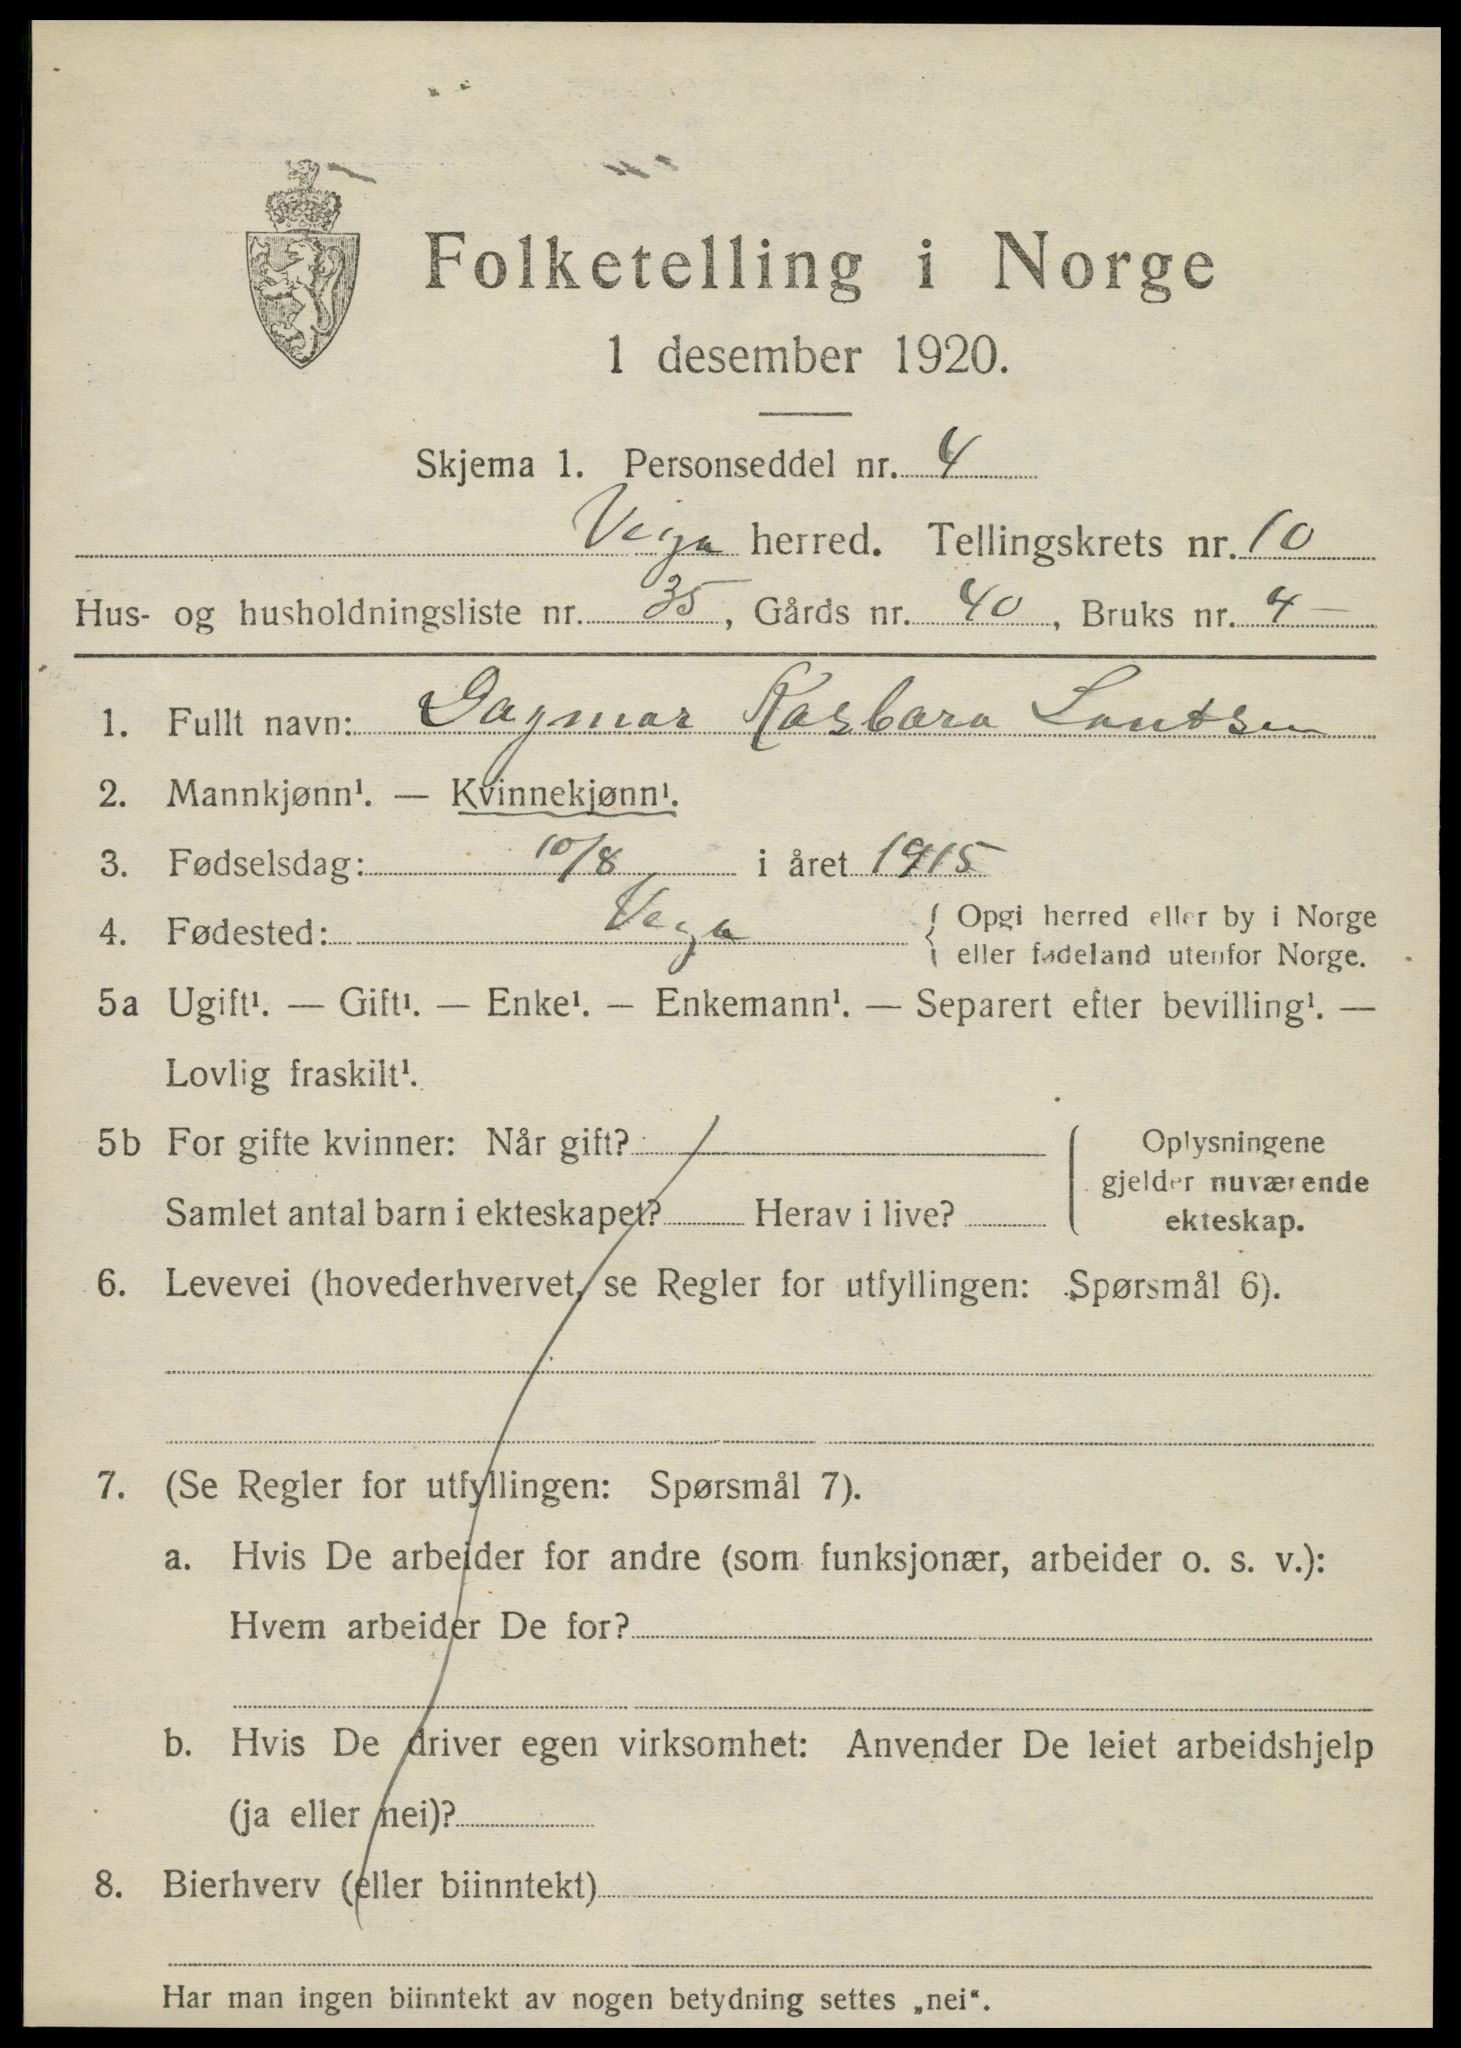 Folketelling i Norge
1 desember 1920.
Skjema 1. Personseddel nr. 4
Vega herred. Tellingskrets nr. 10
Hus- og husholdningsliste nr. 35, Gårds nr. 40, Bruks nr. 4
1. Fullt navn: Dagmar Kasbara
2. Mannkjønn¹. — Kvinnekjønn¹.
3. Fødselsdag: 10/8 i året 1915
4. Fødested: Vega { Opgi herred eller by i Norge
eller fødeland utenfor Norge.
5a Ugift¹. — Gift¹. — Enke¹. — Enkemann¹. — Separert efter bevilling¹. —
Lovlig fraskilt¹.
5b For gifte kvinner: Når gift?
Samlet antal barn i ekteskapet? Herav i live?
Oplysningene
gjelder nuværende
ekteskap.
6. Levevei (hovederhvervet, se Regler for utfyllingen: Spørsmål 6).
7. (Se Regler for utfyllingen: Spørsmål 7).
a. Hvis De arbeider for andre (som funksjonær, arbeider o. s. v.):
Hvem arbeider De for?
b. Hvis De driver egen virksomhet: Anvender De leiet arbeidshjelp
(ja eller nei)?
8. Bierhverv (eller biinntekt)
Har man ingen biinntekt av nogen betydning settes „nei“.